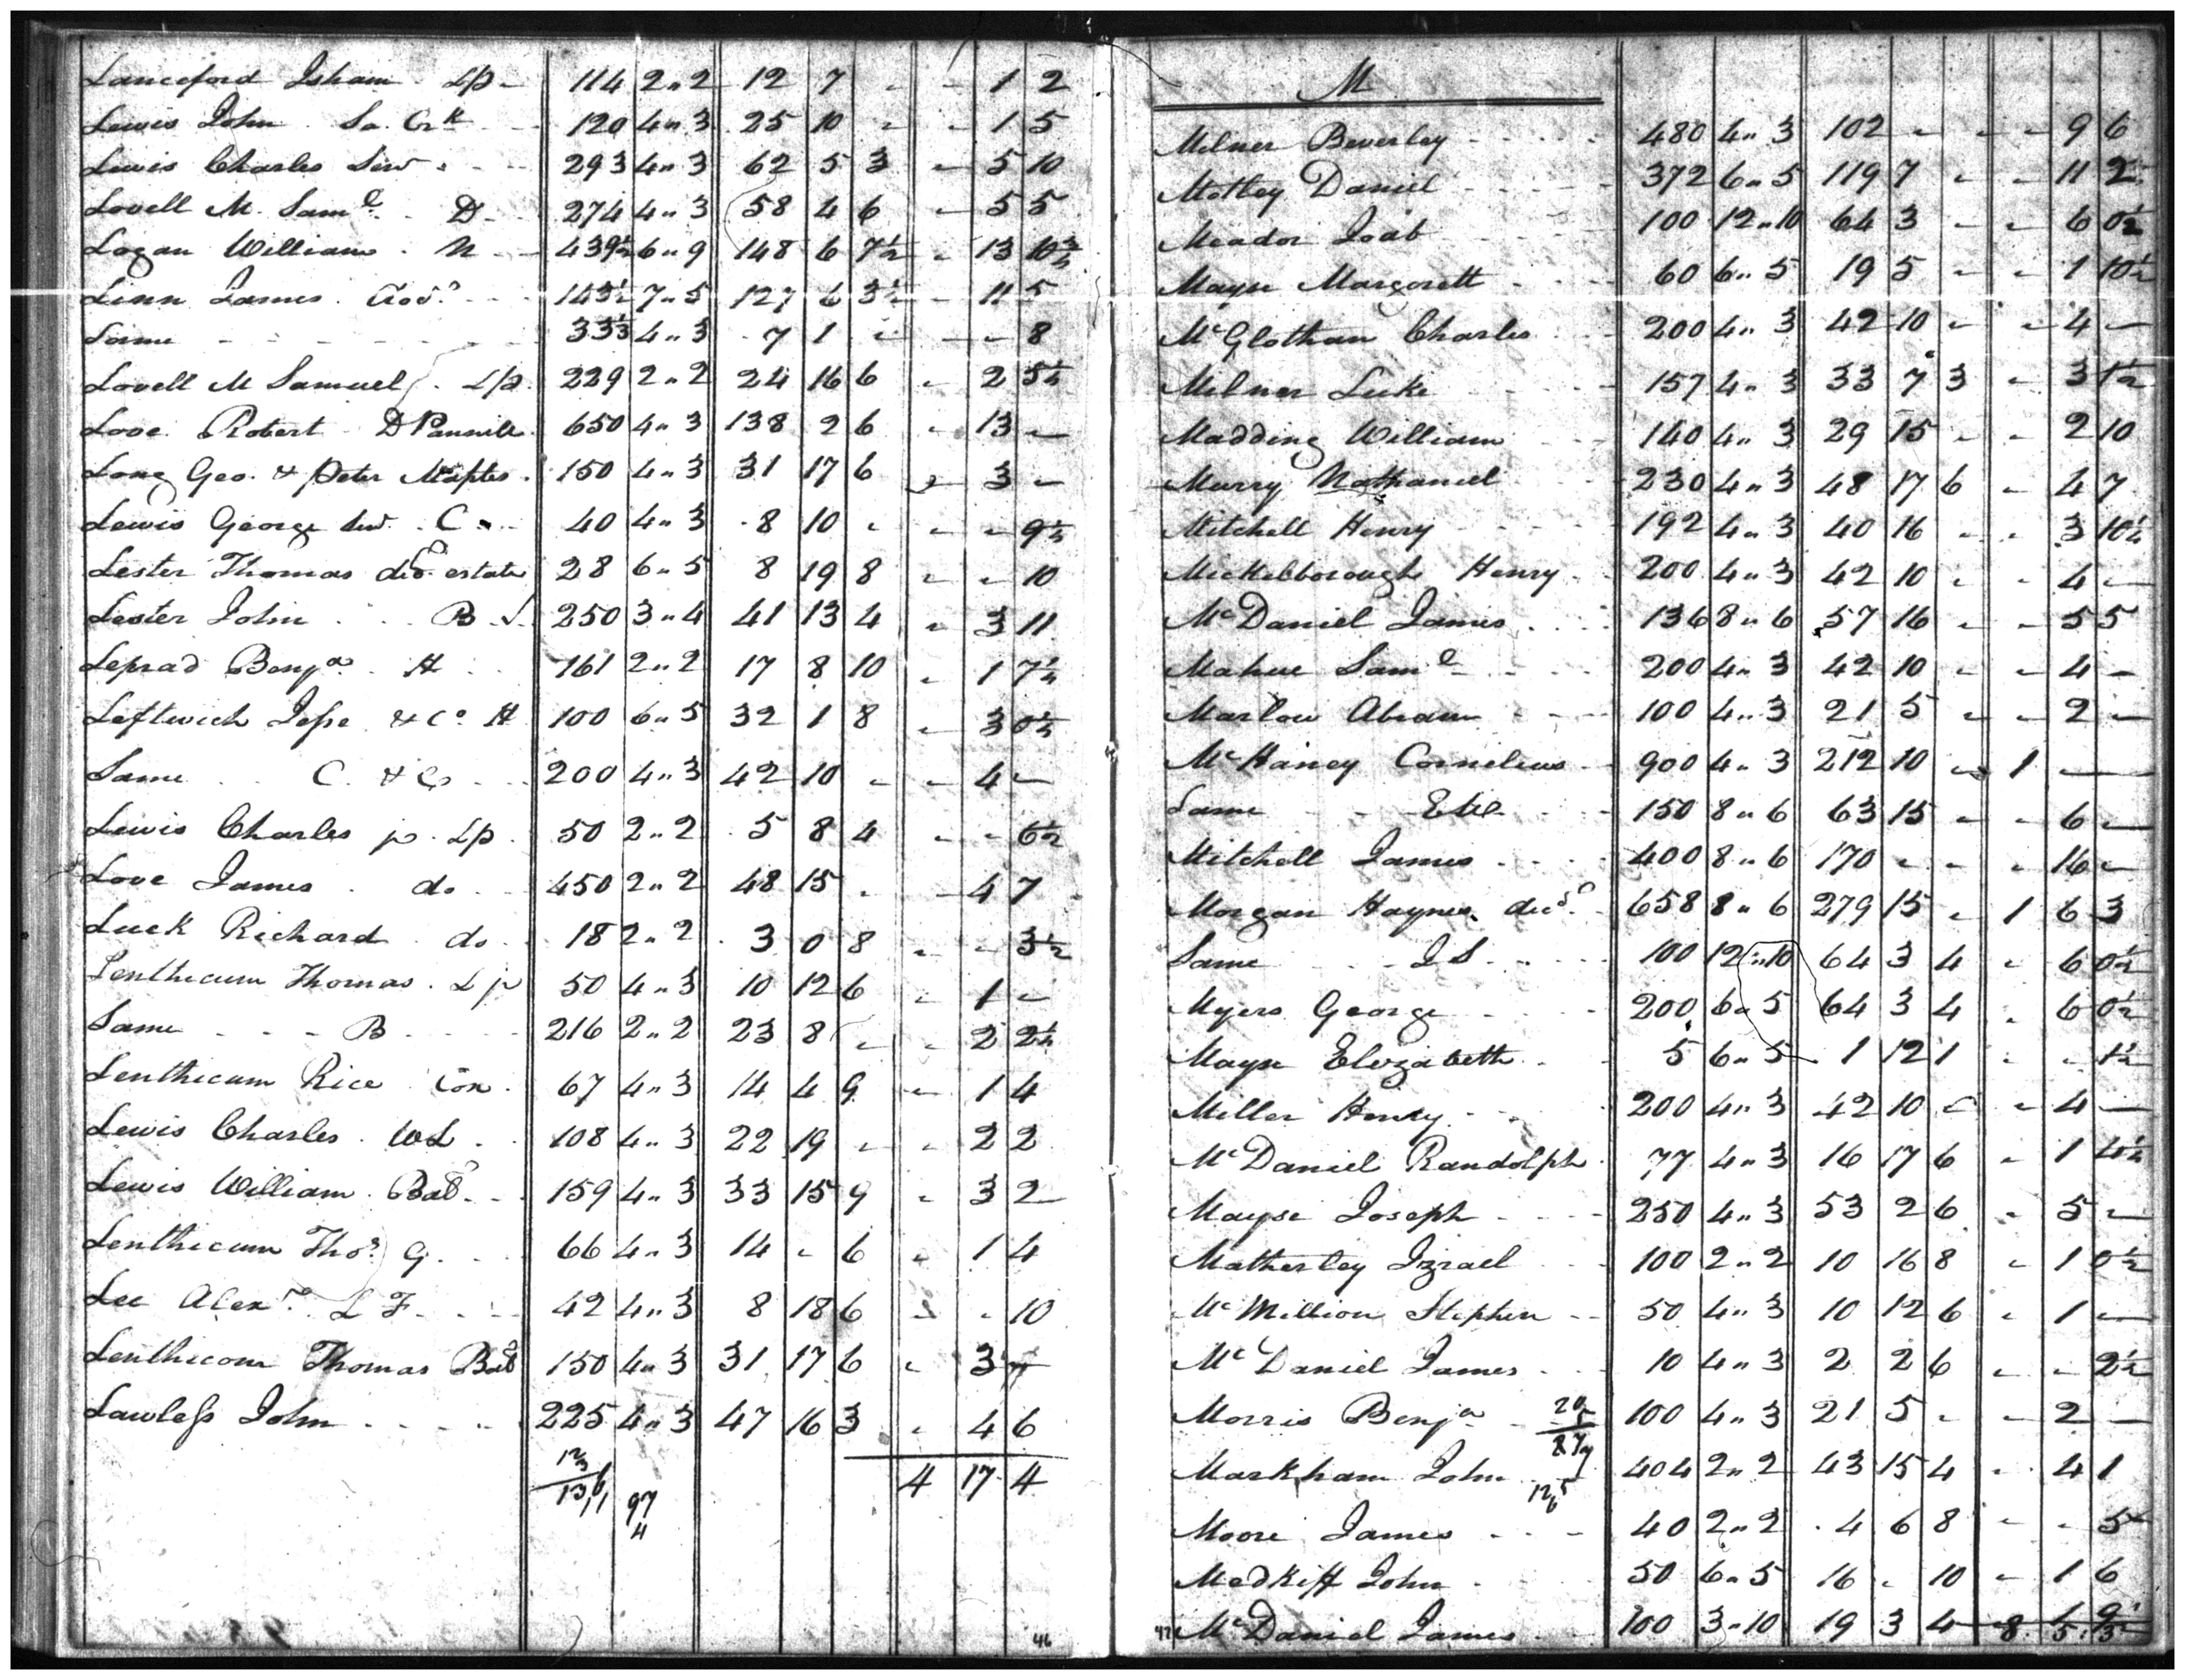 Lanceford Isham Lp 114 2"2 12 7 - - 1 2
Lewis John Sa. Crk 120 4"3 25 10 - - 1 5
Lewis Charles Senr 293 4"3 62 5 3 - 5 10
Lovell M. Saml D 274 4"3 58 4 6 - 5 5
Logan William N 439½ 6"9 148 6 7½ - 13 10¾
Linn James 143½ 7"5 127 6 3½ - 11 5
Same 33⅓ 4"3 7 1 - - - 8
Lovell M Samuel Lp 229 2"2 24 16 6 - 2 5½
Love Robert D Pannill 650 4"3 138 2 6 - 13 -
Long Geo. & Peter Maples 150 4"3 31 17 6 - 3 -
Lewis George C 40 4"3 8 10 - - - 9½
Lester Thomas decd estate 28 6"5 8 19 8 - - 10
Lester John B S 250 3"4 41 13 4 - 3 11
Leprad Benja H 161 2"2 17 8 10 - 1 7½
Leftwich Jesse & Co H 100 6"5 32 1 8 - 3 0½
Same C. & Co 200 4"3 42 10 - - 4 -
Lewis Charles jr Lp 50 2"2 5 8 4 - - 6½
Love James do 450 2"2 48 15 - - 4 7
Luck Richard do 18 2"2 3 0 8 - - 3½
Lenthicum Thomas Lp 50 4"3 10 12 6 - 1 -
Same B 216 2"2 23 8 - - 2 2½
Lenthicum Rice Con 67 4"3 14 4 9 - 1 4
Lewis Charles WL 108 4"3 22 19 - - 2 2
Lewis William 159 4"3 33 15 9 - 3 2
Lenthicum Thos G. 66 4"3 14 - 6 - 1 4
Lee Alexr L F 42 4"3 8 18 6 - - 10
Lenthicom Thomas 150 4"3 31 17 6 - 3 -
Lawless John 225 4"3 47 16 3 - 4 6
4 17 4
97
4
46
M
Milner Beverley 480 4"3 102 - - - 9 6
Motley Daniel 372 6"5 119 7 - - 11 2
Meador Joab 100 12"10 64 3 - - 6 0½
Mayse Margorett 60 6"5 19 5 - - 1 10½
McGlothan Charles 200 4"3 42 10 - - 4 -
Milner Luke 157 4"3 33 7 3 - 3 1½
Madding William 140 4"3 29 15 - - 2 10
Murry Nathaniel 230 4"3 48 17 6 - 4 7
Mitchell Henry 192 4"3 40 16 - - 3 10½
Mickelborough Henry 200 4"3 42 10 - - 4 -
McDaniel James 136 8"6 57 16 - - 5 5
Mahue Saml 200 4"3 42 10 - - 4 -
Marlow Abram 100 4"3 21 5 - - 2 -
McHaney Cornelius 900 4"3 212 10 - 1 - -
Same 150 8"6 63 15 - - 6 -
Mitchell James 400 8"6 170 - - - 16 -
Morgan Haynes decd 658 8"6 279 15 - 1 6 3
Same I S 100 12"10 64 3 4 - 6 0½
Myers George 200 6"5 64 3 4 - 6 0½
Mayse Elizabeth 5 6"5 1 12 1 - - 1½
Miller Henry 200 4"3 42 10 - - 4 -
McDaniel Randolph 77 4"3 16 17 6 - 1 4½
Mayse Joseph 250 4"3 53 2 6 - 5 -
Matherley Izrael 100 2"2 10 16 8 - 1 0½
McMillion Stephen 50 4"3 10 12 6 - 1 -
McDaniel James 10 4"3 2 2 6 - - 2½
Morris Benja 100 4"3 21 5 - - 2 -
Markham John 404 2"2 43 15 4 - 4 1
Moore James 40 2"2 4 6 8 - - 5
Medkiff John 50 6"5 16 - 10 - 1 6
47 McDaniel James 100 3"10 19 3 4